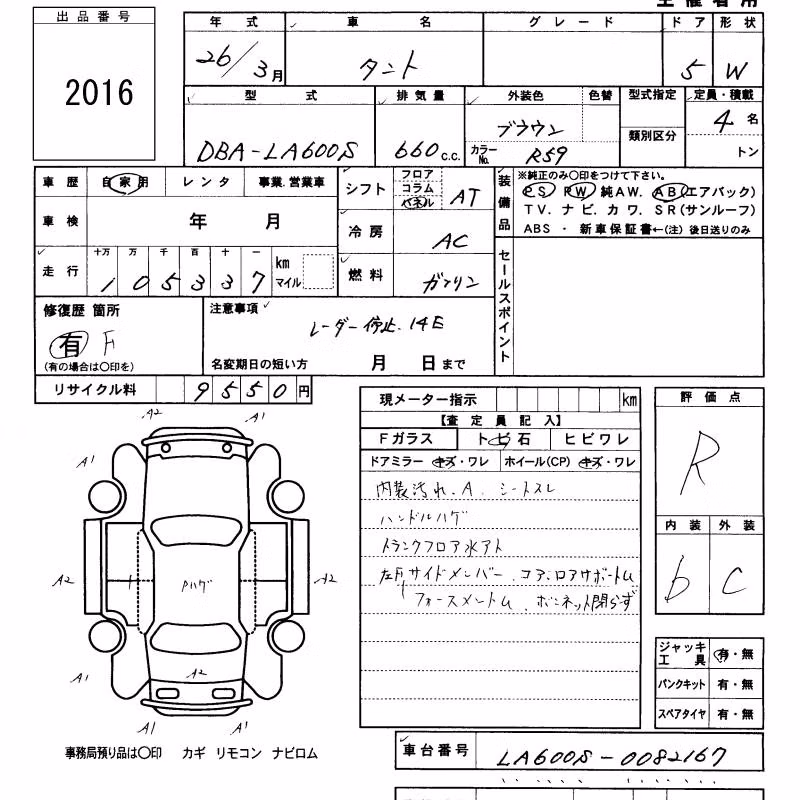 出品番号
2016
年 式 車 名 グ レ ー ド ド ア 形 状
26/3月 タント 5 W
型 式 排 気 量 外装色 色替 型式指定 定員・積載
DBA-LA600S 660 c.c. ブラウン 類別区分 4 名
カラーNo. R59 トン
車 歴 自家用 レ ン タ 事業.営業車
車 検 年 月
走 行 十万 万 千 百 十 一
1 0 5 3 3 7 km マイル
シフト フロア コラム パネル AT
冷 房 AC
燃 料 ガソリン
装備品
※純正のみ〇印をつけて下さい。
PS PW 純AW. AB(エアバック)
TV. ナ ビ. カ ワ. SR(サンルーフ)
ABS ・ 新車保証書←(注) 後日送りのみ
セールスポイント
修復歴 箇所
有 F
(有の場合は〇印を)
注意事項
レーダー停止. 14E
名変期日の短い方 月 日 まで
リサイクル料 9 5 5 0 円
現メーター指示 km
【査 定 員 記 入】
Fガラス トビ石 ヒビワレ
ドアミラー キズ・ワレ ホイール(CP) キズ・ワレ
内装汚れ. A. シートスレ
ハンドルハゲ
トランクフロア水アト
左Fサイドメンバー. コア. ロアサポートム
フォースメントム. ボンネット閉らず
評 価 点
R
内 装 外 装
b C
ジャッキ工具 有・無
パンクキット 有・無
スペアタイヤ 有・無
A2 A1
A1 A1
A2 Pハゲ A2
A1 A2 A1
A1 A1
事務局預り品は〇印 カギ リモコン ナビロム
車台番号 LA600S-0082167